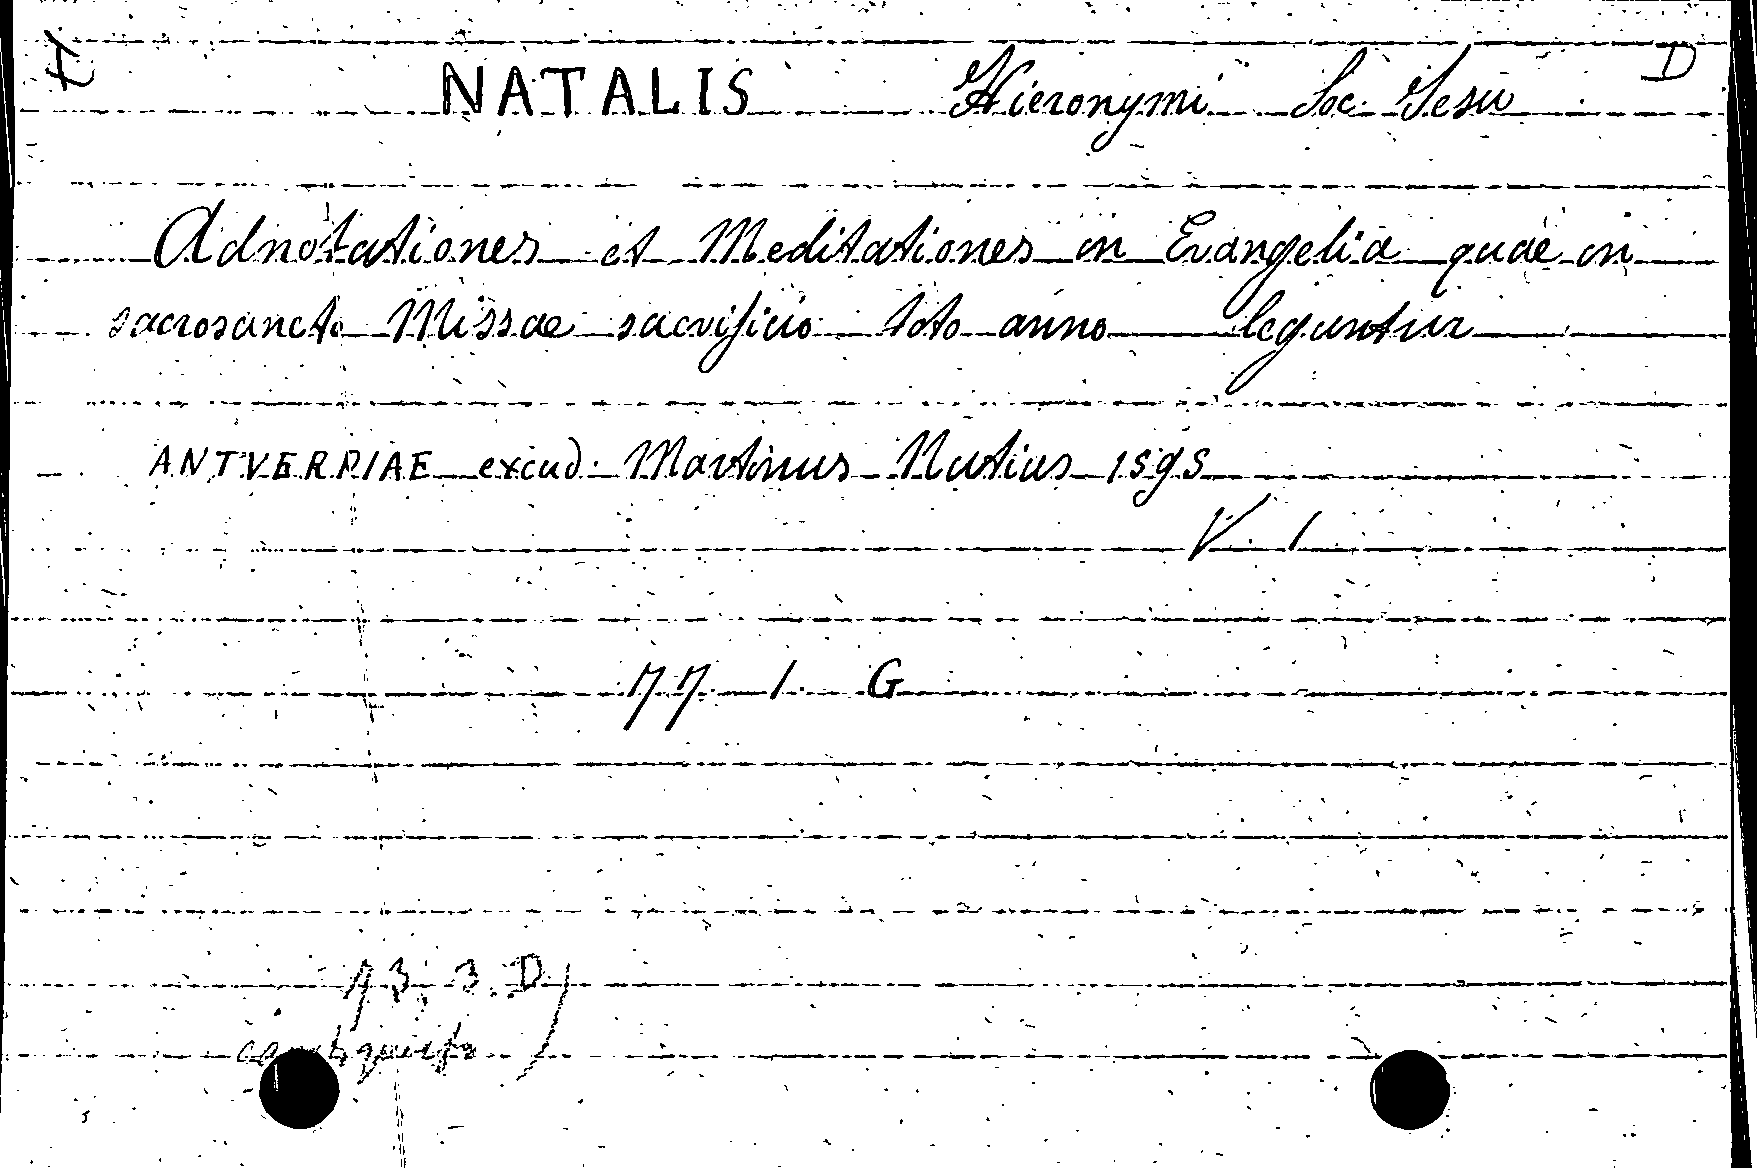 t NATALIS Hieronymi Soc. Jesu D
Adnotationes et Meditationes in Evangelia quae in
sacrosancto Missae sacrificio toto anno leguntur
ANTVERPIAE excud. Martinus Nutius 1595
V. 1
77 1 G
73, 3. D